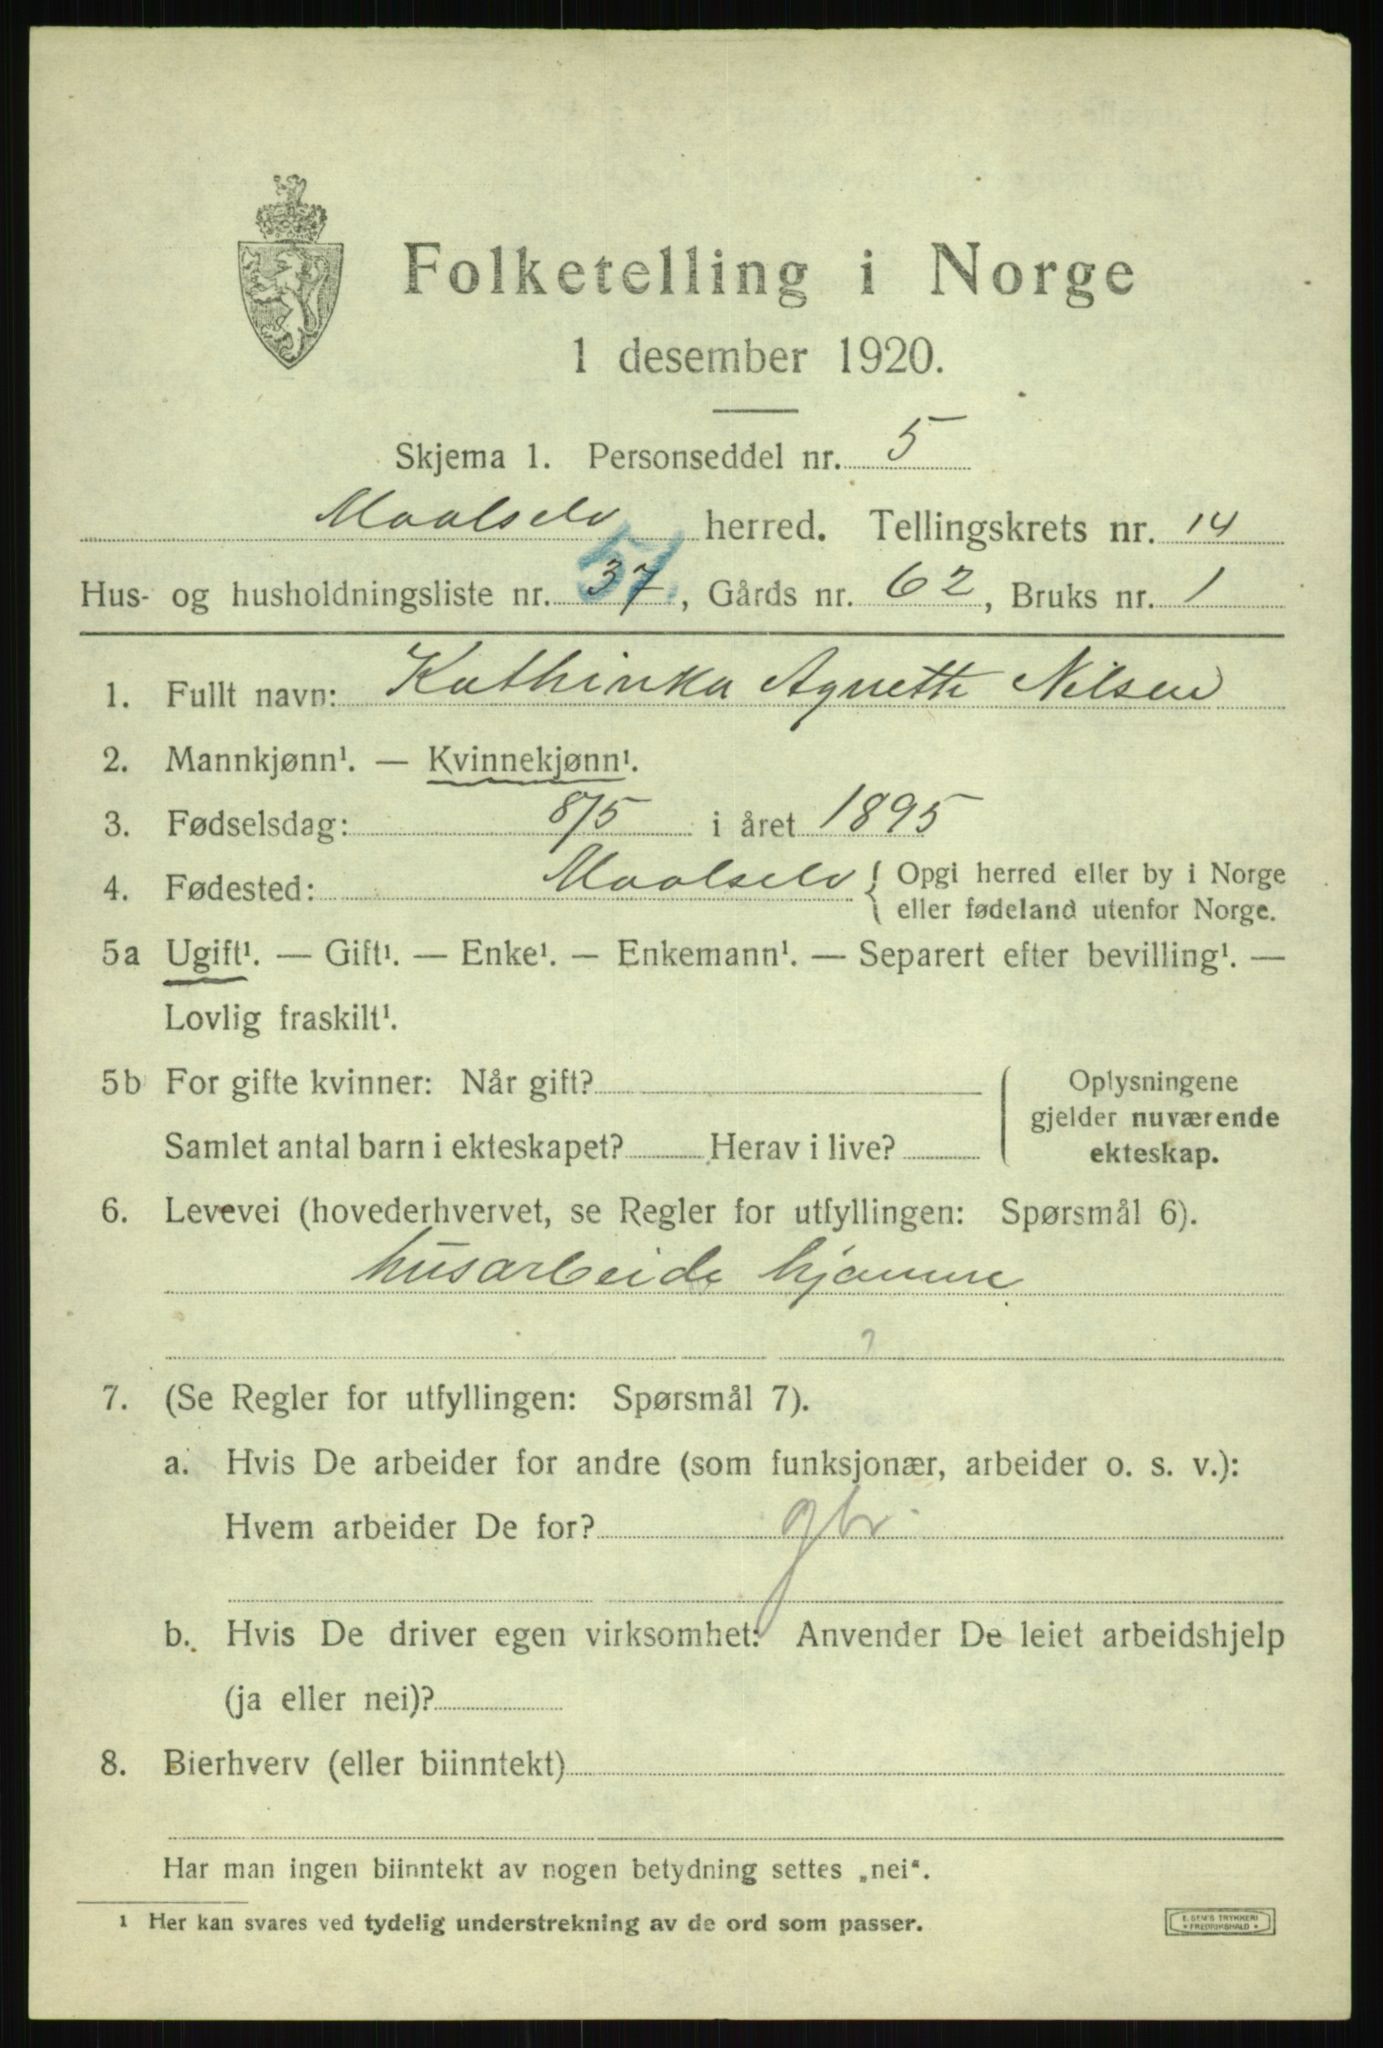 Folketelling i Norge
1 desember 1920.
Skjema 1. Personseddel nr. 5
Maalselv herred. Tellingskrets nr. 14
51.
Hus- og husholdningsliste nr. 37, Gårds nr. 62, Bruks nr. 1
1. Fullt navn: Kathinka Agnette Nilsen
2. Mannkjønn¹. — Kvinnekjønn¹.
3. Fødselsdag: 8/5 i året 1895
4. Fødested: Maalselv { Opgi herred eller by i Norge
eller fødeland utenfor Norge.
5a Ugift¹. — Gift¹. — Enke¹. — Enkemann¹. — Separert efter bevilling¹. —
Lovlig fraskilt¹.
5b For gifte kvinner: Når gift?
Samlet antal barn i ekteskapet? Herav i live?
Oplysningene
gjelder nuværende
ekteskap.
6. Levevei (hovederhvervet, se Regler for utfyllingen: Spørsmål 6).
husarbeide hjemme
?
7. (Se Regler for utfyllingen: Spørsmål 7).
a. Hvis De arbeider for andre (som funksjonær, arbeider o. s. v.):
Hvem arbeider De for? gbr.
b. Hvis De driver egen virksomhet: Anvender De leiet arbeidshjelp
(ja eller nei)?
8. Bierhverv (eller biinntekt)
Har man ingen biinntekt av nogen betydning settes „nei“.
1 Her kan svares ved tydelig understrekning av de ord som passer.
E. SEM'S TRYKKERI
* FREDRIKSHALD *